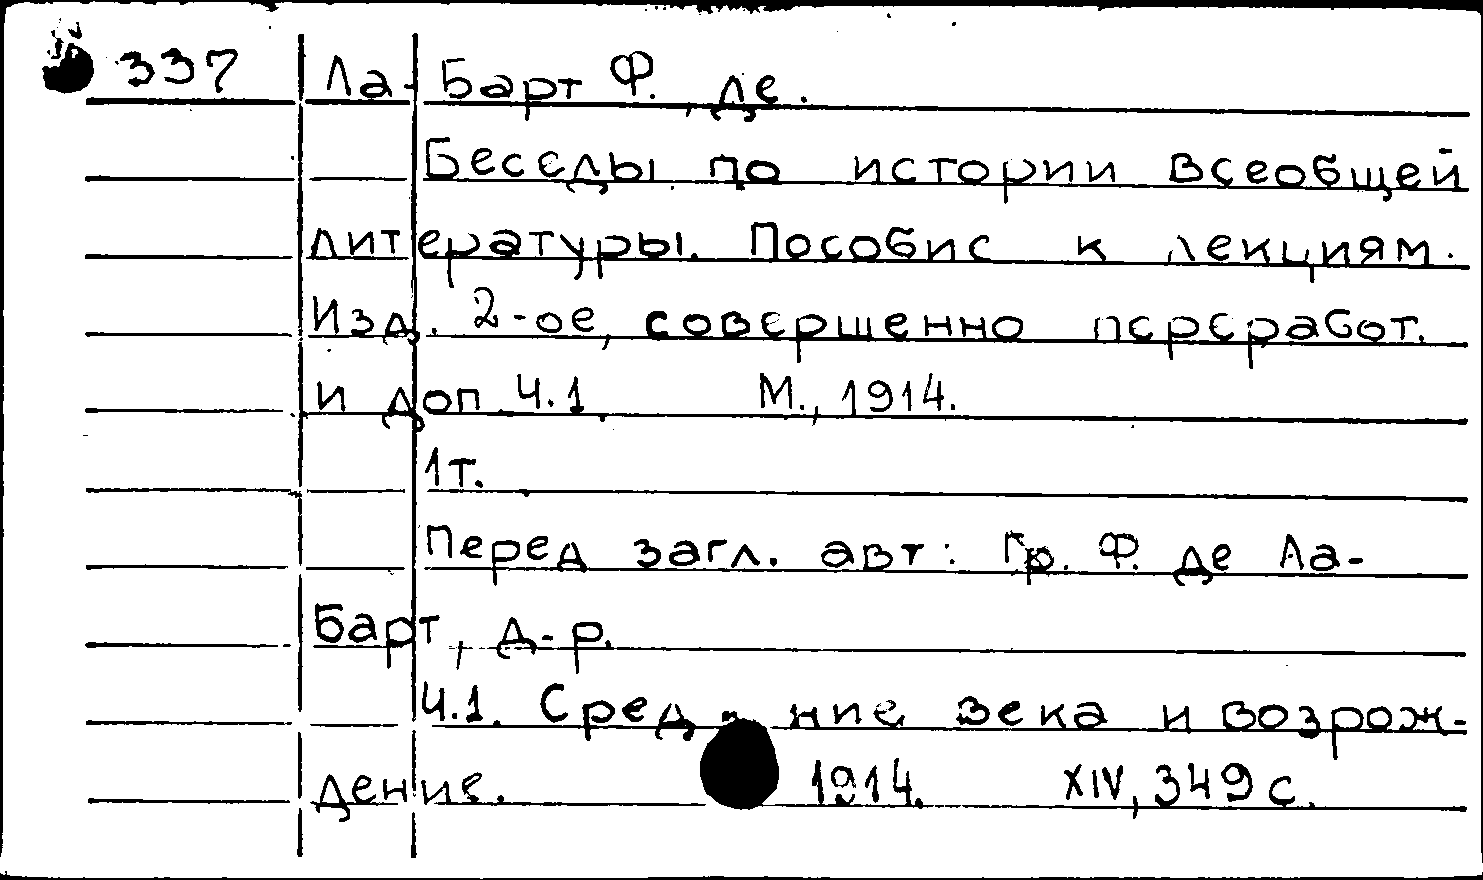 337 Ла-Барт Ф., де.
Беседы по истории всеобщей
литературы. Пособие к лекциям.
Изд. 2-ое, совершенно переработ.
и доп Ч.1. М., 1914.
1т.
Перед загл. авт: Гр. Ф. де Ла-
Барт, д-р.
Ч.1. Средние века и возрож-
дение. 1914. XIV, 349 с.